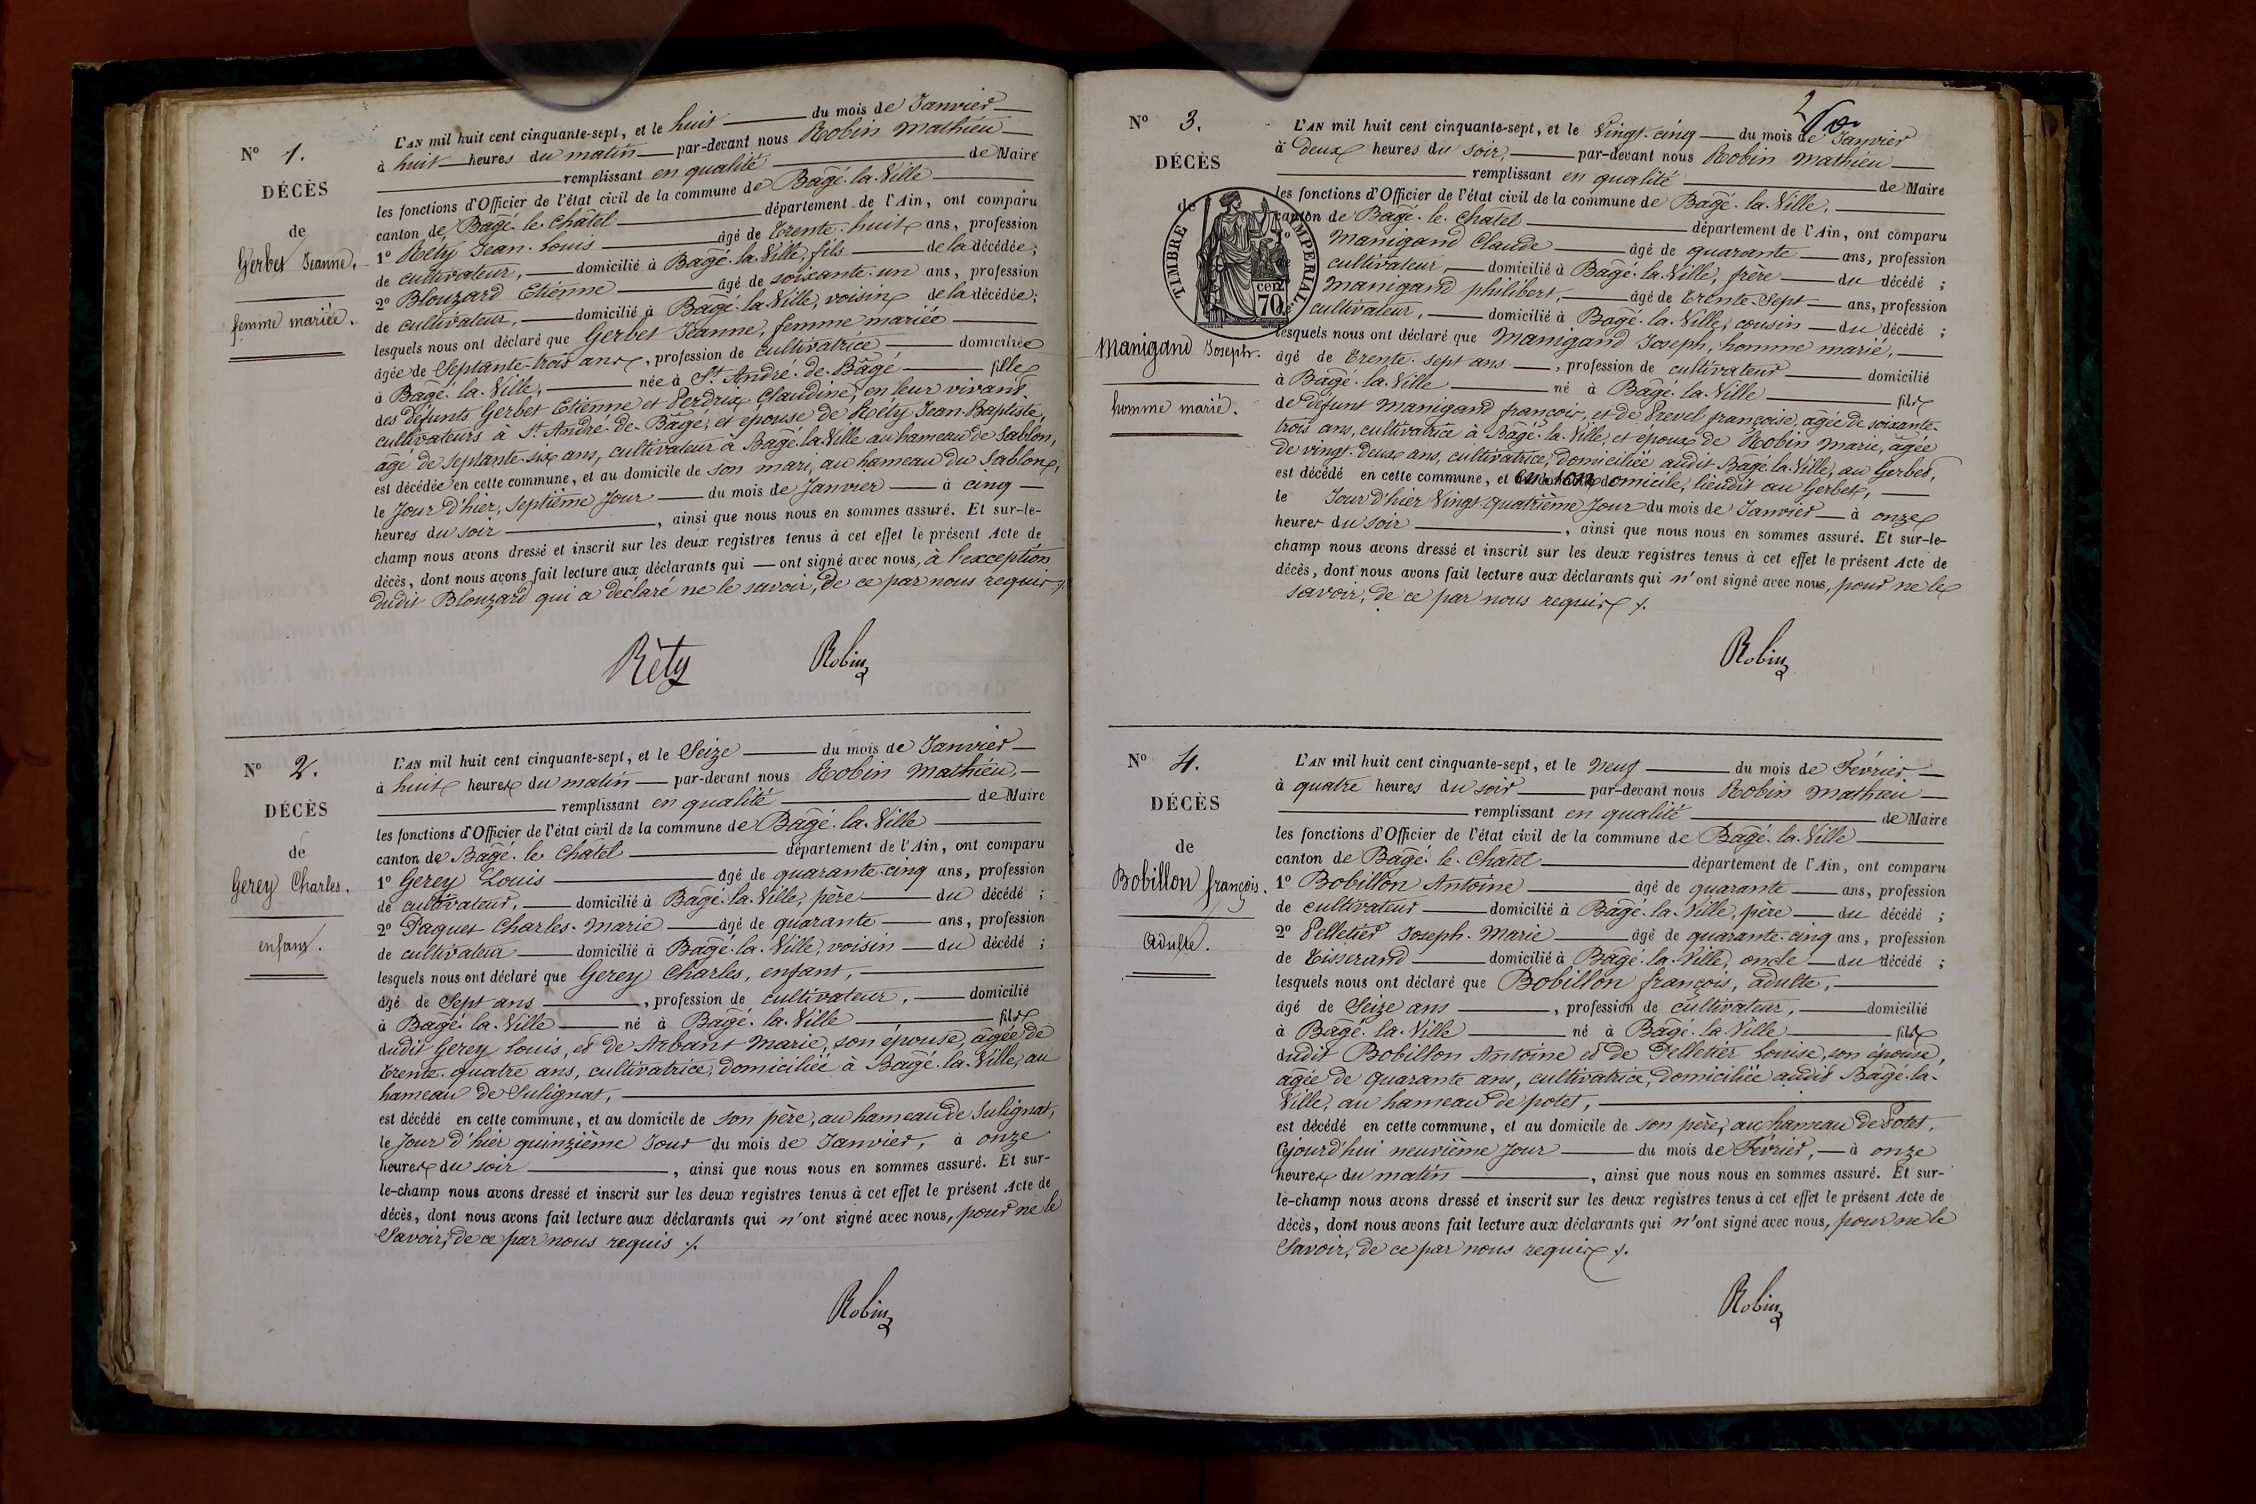 N° 1.
DÉCÈS
de
Gerbet Jeanne.
femme mariée.
L'AN mil huit cent cinquante-sept, et le huit du mois de Janvier
à huit heures du matin par-devant nous Robin Mathieu
remplissant en qualité de Maire
les fonctions d'Officier de l'état civil de la commune de Bâgé-la-Ville
canton de Bâgé-le-Châtel département de l'Ain, ont comparu
1° Réty Jean-Louis âgé de trente-huit ans, profession
de cultivateur, domicilié à Bâgé-la-Ville, fils de la décédée;
2° Blouzard Etienne âgé de soixante-un ans, profession
de cultivateur, domicilié à Bâgé-la-Ville, voisin de la décédée;
lesquels nous ont déclaré que Gerbet Jeanne, femme mariée
âgée de Septante-trois ans, profession de cultivatrice domiciliée
à Bâgé-la-Ville, née à St André-de-Bâgé fille
des défunts Gerbet Etienne et Perdrix Claudine, en leur vivant
cultivateurs à St André-de-Bâgé, et épouse de Réty Jean-Baptiste,
âgé de septante-six ans, cultivateur à Bâgé-la-Ville au hameau de Sablon,
est décédée en cette commune, et au domicile de son mari, au hameau du Sablon,
le Jour d'hier, septième Jour du mois de Janvier à cinq
heures du soir, ainsi que nous nous en sommes assuré. Et sur-le-
champ nous avons dressé et inscrit sur les deux registres tenus à cet effet le présent Acte de
décès, dont nous avons fait lecture aux déclarants qui ont signé avec nous, à l'exception
dudit Blouzard qui a déclaré ne le savoir, de ce par nous requis ./.
Réty Robin
N° 2.
DÉCÈS
de
Gerey Charles.
enfant.
L'AN mil huit cent cinquante-sept, et le Seize du mois de Janvier
à huit heures du matin par-devant nous Robin Mathieu,
remplissant en qualité de Maire
les fonctions d'Officier de l'état civil de la commune de Bâgé-la-Ville
canton de Bâgé-le-Châtel département de l'Ain, ont comparu
1° Gerey Louis âgé de quarante-cinq ans, profession
de cultivateur, domicilié à Bâgé-la-Ville, père du décédé;
2° Paquet Charles-Marie âgé de quarante ans, profession
de cultivateur domicilié à Bâgé-la-Ville, voisin du décédé;
lesquels nous ont déclaré que Gerey Charles, enfant,
âgé de Sept ans, profession de cultivateur, domicilié
à Bâgé-la-Ville né à Bâgé-la-Ville fils
dudit Gerey Louis, et de Arbant Marie, son épouse, âgée de
trente-quatre ans, cultivatrice, domiciliée à Bâgé-la-Ville, au
hameau de Sulignat,
est décédé en cette commune, et au domicile de son père, au hameau de Sulignat,
le Jour d'hier quinzième Jour du mois de Janvier, à onze
heures du soir, ainsi que nous nous en sommes assuré. Et sur-
le-champ nous avons dressé et inscrit sur les deux registres tenus à cet effet le présent Acte de
décès, dont nous avons fait lecture aux déclarants qui n'ont signé avec nous, pour ne le
Savoir, de ce par nous requis ./.
Robin
2
N° 3.
DÉCÈS
de
TIMBRE IMPERIAL
cen 70 c
Manigand Joseph.
homme marié.
L'AN mil huit cent cinquante-sept, et le Vingt-cinq du mois de Janvier
à deux heures du soir, par-devant nous Robin Mathieu
remplissant en qualité de Maire
les fonctions d'Officier de l'état civil de la commune de Bâgé-la-Ville,
canton de Bâgé-le-Châtel département de l'Ain, ont comparu
1° Manigand Claude âgé de quarante ans, profession
de cultivateur, domicilié à Bâgé-la-Ville, frère du décédé;
Manigand philibert, âgé de trente-Sept ans, profession
cultivateur, domicilié à Bâgé-la-Ville, cousin du décédé;
lesquels nous ont déclaré que Manigand Joseph, homme marié,
âgé de trente-sept ans, profession de cultivateur domicilié
à Bâgé-la-Ville né à Bâgé-la-Ville fils
de défunt Manigand françois, et de Prevel françoise, âgée de soixante-
trois ans, cultivatrice à Bâgé-la-Ville, et époux de Robin Marie, âgée
de vingt-deux ans, cultivatrice, domiciliée audit Bâgé-la-Ville, au Gerbet,
est décédé en cette commune, et en son domicile, lieudit au Gerbet,
le Jour d'hier Vingt-quatrième Jour du mois de Janvier à onze
heures du soir, ainsi que nous nous en sommes assuré. Et sur-le-
champ nous avons dressé et inscrit sur les deux registres tenus à cet effet le présent Acte de
décès, dont nous avons fait lecture aux déclarants qui n'ont signé avec nous, pour ne le
savoir, de ce par nous requis ./.
Robin
N° 4.
DÉCÈS
de
Bobillon françois.
adulte.
L'AN mil huit cent cinquante-sept, et le Neuf du mois de Février
à quatre heures du soir par-devant nous Robin Mathieu
remplissant en qualité de Maire
les fonctions d'Officier de l'état civil de la commune de Bâgé-la-Ville
canton de Bâgé-le-Châtel département de l'Ain, ont comparu
1° Bobillon Antoine âgé de quarante ans, profession
de cultivateur domicilié à Bâgé-la-Ville, père du décédé;
2° Pelletier Joseph-Marie âgé de quarante-cinq ans, profession
de Tisserand domicilié à Bâgé-la-Ville, oncle du décédé;
lesquels nous ont déclaré que Bobillon françois, adulte,
âgé de Seize ans, profession de cultivateur, domicilié
à Bâgé-la-Ville né à Bâgé-la-Ville fils
dudit Bobillon Antoine et de Pelletier Louise, son épouse,
âgée de quarante ans, cultivatrice, domiciliée audit Bâgé-la-
Ville, au hameau de potet,
est décédé en cette commune, et au domicile de son père, au hameau de Potet,
cejourd'hui neuvième Jour du mois de Février, à onze
heures du matin, ainsi que nous nous en sommes assuré. Et sur-
le-champ nous avons dressé et inscrit sur les deux registres tenus à cet effet le présent Acte de
décès, dont nous avons fait lecture aux déclarants qui n'ont signé avec nous, pour ne le
Savoir, de ce par nous requis ./.
Robin